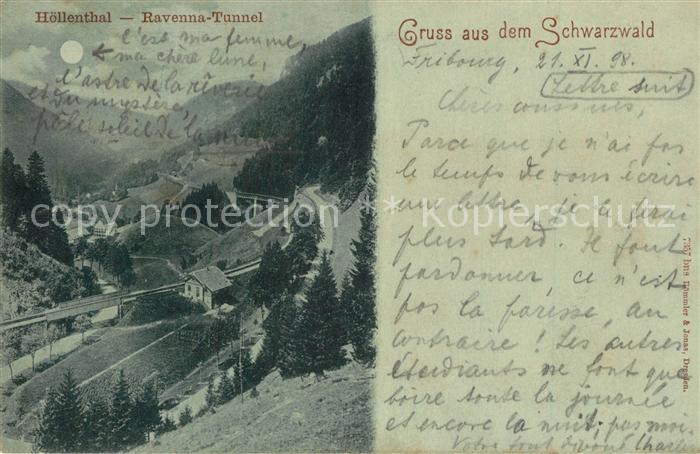 Höllenthal — Ravenna-Tunnel
c'est ma femme,
ma chère lune,
l'astre de la rêverie
et du mystère,
pâle soleil de la
Gruss aus dem Schwarzwald
Fribourg, 21. XI. 98.
Lettre suit
Chères cousines,
Parce que je n'ai pas
le temps de vous écrire
une lettre, je le ferai
plus tard. Il faut
pardonner, ce n'est
pas la paresse, au
contraire! Les autres
étudiants ne font que
boire toute la journée
et encore la nuit; pas moi.
Votre tout dévoué Charles
copy protection * Kopierschutz
Römmler & Jonas, Dresden.